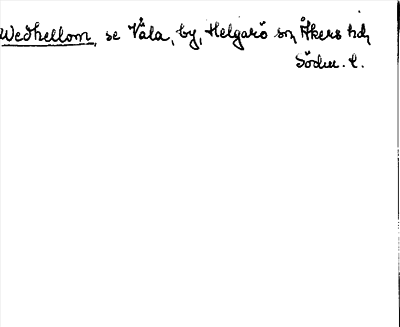 Wedhellom, se Våla, by, Helgarö sn, Åkers hd,
Södm. l.